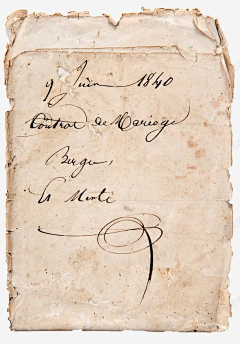 9 Juin 1840
Contrat de Mariage
Berger,
Et